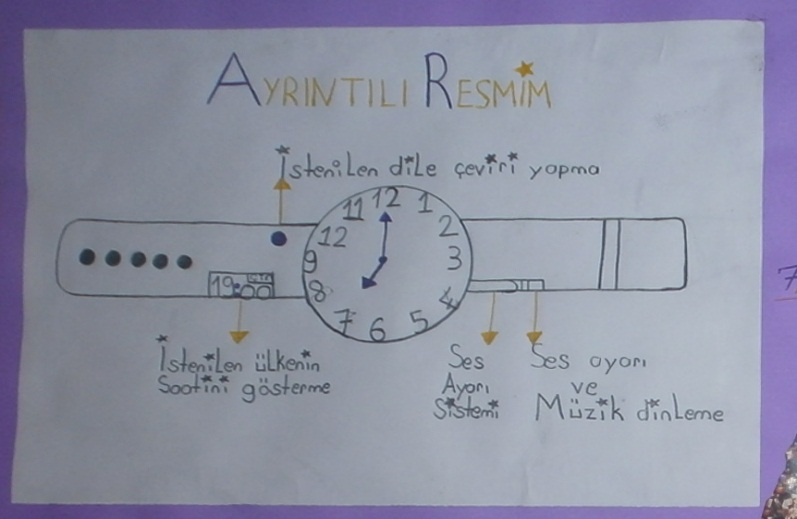 AYRINTILI RESMİM
İstenilen dile çeviri yapma
12
11
1
12
2
9
3
19:00
8
4
7
6
5
İstenilen ülkenin
Saatini gösterme
Ses
Ayarı
Sistemi
Ses ayarı
ve
Müzik dinleme